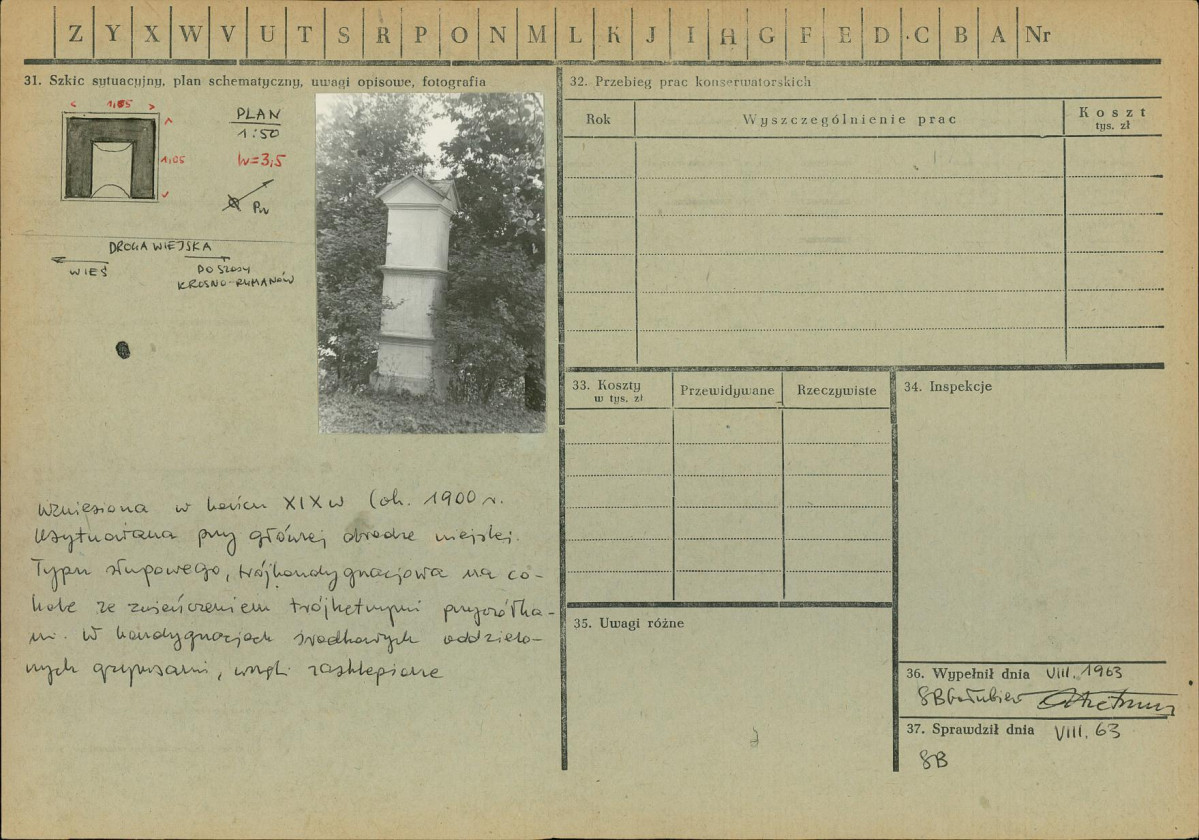 Z Y X W V U T S R P O N M L K J I H G F E D C B A Nr
31. Szkic sytuacyjny, plan schematyczny, uwagi opisowe, fotografia
1,05
PLAN
1:50
1,05
W=3,5
DROGA WIEJSKA
WIEŚ
DO SZOSY
KROSNO-RYMANÓW
wzniesiona w końcu XIX w (ok. 1900 r.
Usytuowana przy głównej drodze wiejskiej.
Typu słupowego, trójkondygnacjowa na co-
kole ze zwieńczeniem trójkątnymi przyczółka-
mi. W kondygnacjach środkowych oddzielo-
nych gzymsami, wnęki zasklepione
32. Przebieg prac konserwatorskich
Rok
Wyszczególnienie prac
Koszt
tys. zł
33. Koszty
w tys. zł
Przewidywane
Rzeczywiste
34. Inspekcje
35. Uwagi różne
36. Wypełnił dnia VIII. 1963
37. Sprawdził dnia VIII. 63